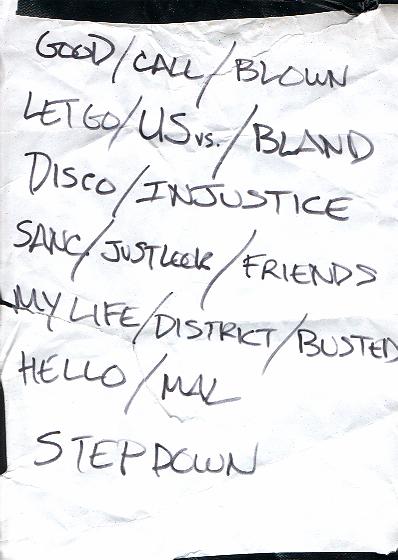 GOOD/CALL/BLOWN
LET GO/US vs./BLAND
DISCO/INJUSTICE
SANC./JUST LOOK/FRIENDS
MY LIFE/DISTRICT/BUSTED
HELLO/MAL
STEPDOWN